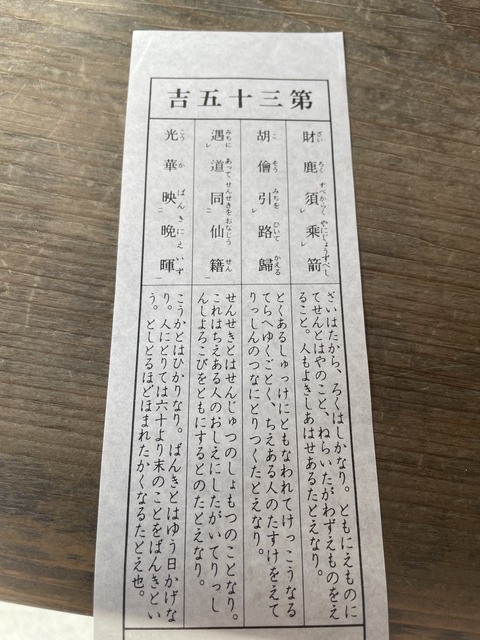 第三十五吉
財鹿須乗箭
ざいろくすべからくやにじょうずべし
胡僧引路歸
こそうみちをひいてかえる
遇道同仙籍
みちにあってせんせきをおなじうせん
光華映晩暉
こうかばんきにえいず
ざいはたから、ろくはしかなり。ともにえものに
てせんとはやのこと、ねらいたがわずえものをえ
ること。人もよきしあはせあるたとえなり。
とくあるしゅっけにともなわれてけっこうなる
てらへゆくごとく、ちえある人のたすけをえて
りっしんのつなにとりつくたとえなり。
せんせきとはせんじゅつのしょもつのことなり。
これはちえある人のおしえにしたがいてりっし
んしよろこびをともにするとのたとえなり。
こうかとはひかりなり。ばんきとはゆう日かげな
り。人にとりては六十より末のことをばんきとい
う。としどるほどほまれたかくなるたとえ也。